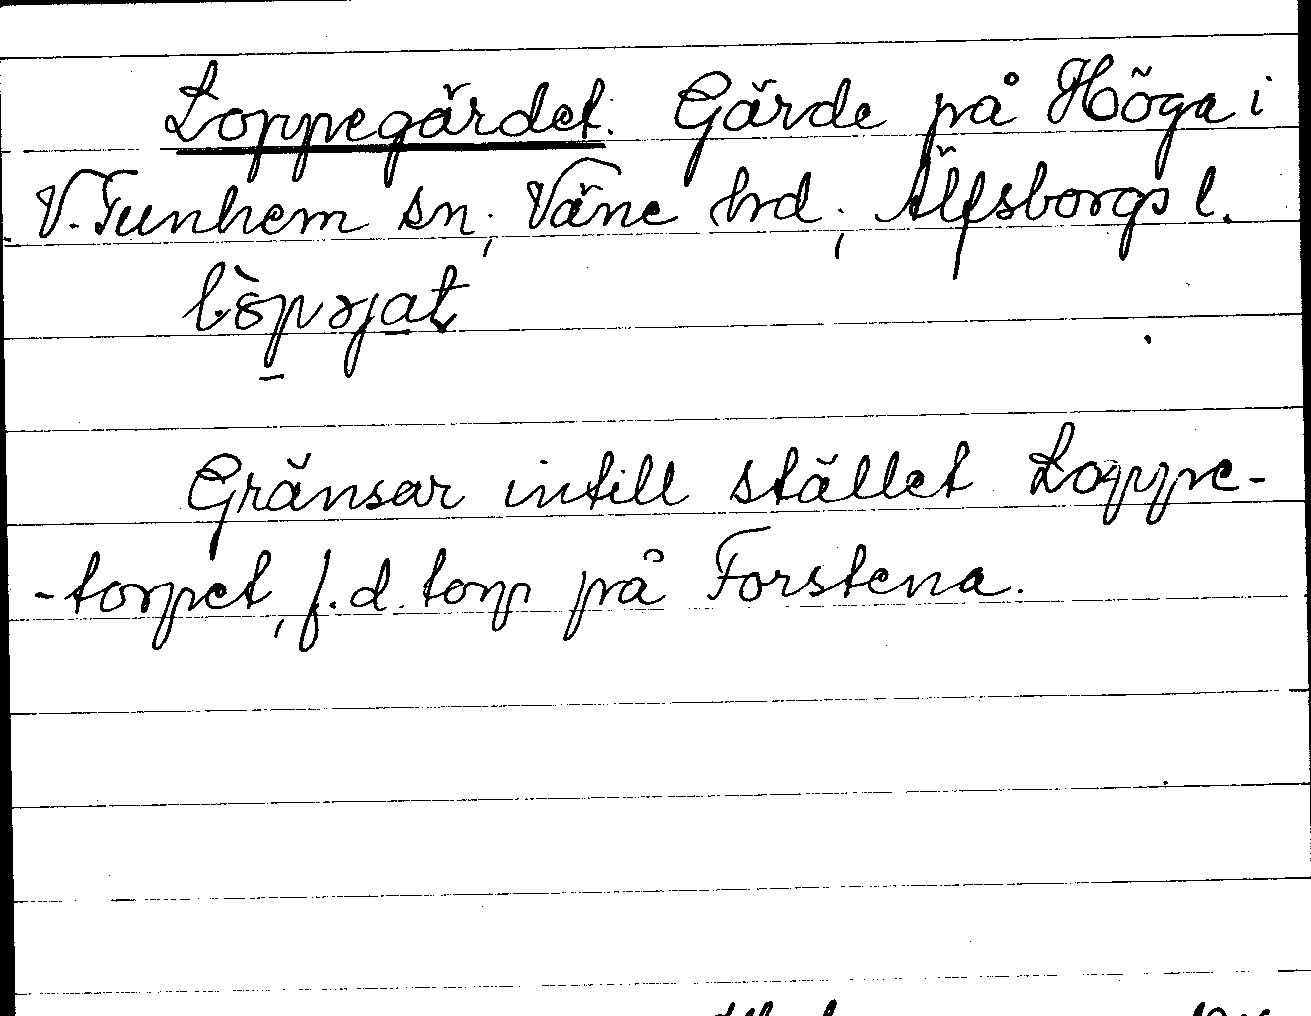 Loppegärdet. Gärde på Höga i
V. Tunhem sn, Väne hrd, Älfsborgs l.
Gränsar intill stället Loppe-
-torpet, f.d. torp på Forstena.